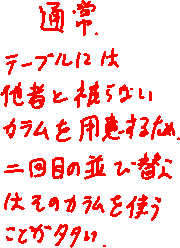 通常
テーブルには
他者と被らない
カラムを用意するため、
二回目の並び替え
はそのカラムを使う
ことが多い。